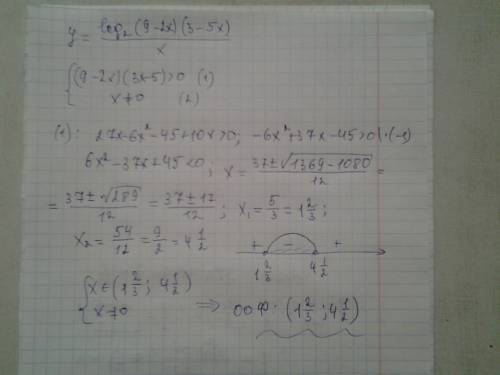 y = log₂(9-2x)(3-5x) / x
{ (9-2x)(3x-5)>0 (1)
x≠0 (2)
(1): 27x-6x²-45+10x>0; -6x²+37x-45>0 |·(-1)
6x²-37x+45<0; x = (37±√(1369-1080))/12 =
= (37±√289)/12 = (37±17)/12; x₁ = 5/3 = 1 2/3;
x₂ = 54/12 = 9/2 = 4 1/2
+ - +
1 2/3 4 1/2
{ x∈(1 2/3; 4 1/2)
x≠0 ⇒ ООФ: (1 2/3; 4 1/2)